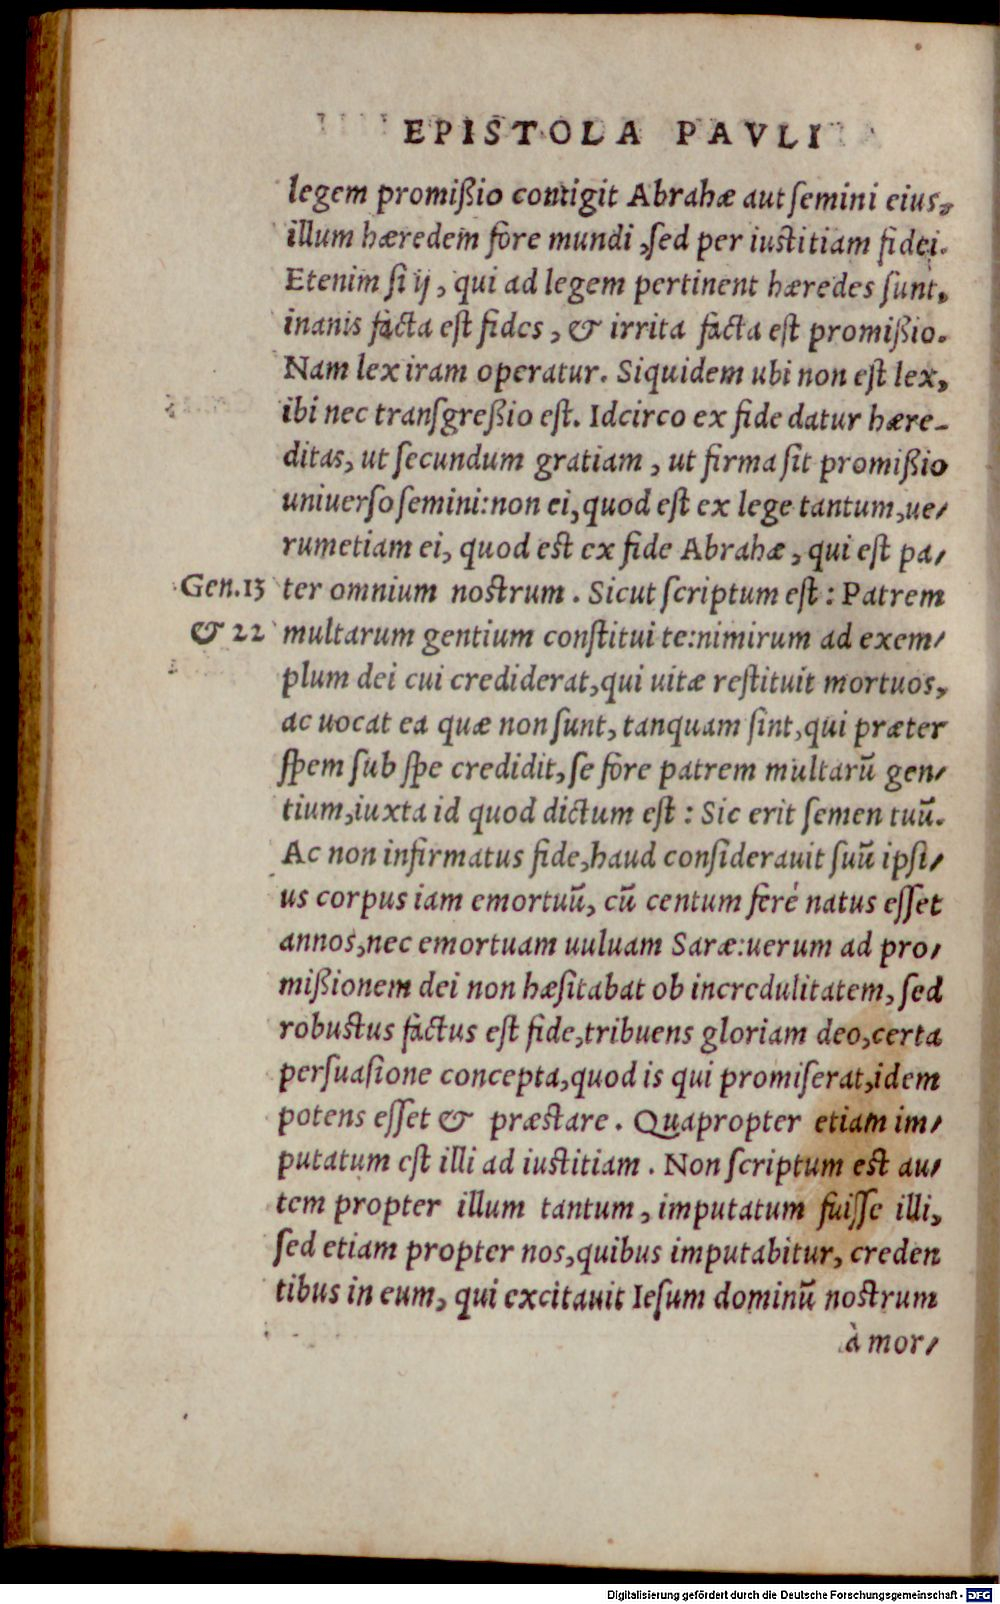 EPISTOLA PAVLI
legem promißio contigit Abrahæ aut ſemini eius,
illum hæredem fore mundi, ſed per iuſtitiam fidei.
Etenim ſi ij, qui ad legem pertinent hæredes ſunt,
inanis facta eſt fides, & irrita facta eſt promißio.
Nam lex iram operatur. Siquidem ubi non eſt lex,
ibi nec tranſgreßio eſt. Idcirco ex fide datur hære-
ditas, ut ſecundum gratiam, ut firma ſit promißio
uniuerſo ſemini: non ei, quod eſt ex lege tantum, ue/
rumetiam ei, quod eſt ex fide Abrahæ, qui eſt pa/
Gen.13 ter omnium noſtrum. Sicut ſcriptum eſt: Patrem
& 22 multarum gentium conſtitui te: nimirum ad exem/
plum dei cui crediderat, qui uitæ reſtituit mortuos,
ac uocat ea quæ non ſunt, tanquam ſint, qui præter
ſpem ſub ſpe credidit, ſe fore patrem multarũ gen/
tium, iuxta id quod dictum eſt: Sic erit ſemen tuũ.
Ac non infirmatus fide, haud conſiderauit ſuũ ipſi/
us corpus iam emortuũ, cũ centum feré natus eſſet
annos, nec emortuam uuluam Saræ: uerum ad pro/
mißionem dei non hæſitabat ob incredulitatem, ſed
robuſtus factus eſt fide, tribuens gloriam deo, certa
perſuaſione concepta, quod is qui promiſerat, idem
potens eſſet & præſtare. Quapropter etiam im/
putatum eſt illi ad iuſtitiam. Non ſcriptum eſt au/
tem propter illum tantum, imputatum fuiſſe illi,
ſed etiam propter nos, quibus imputabitur, creden
tibus in eum, qui excitauit Ieſum dominũ noſtrum
à mor/
Digitalisierung gefördert durch die Deutsche Forschungsgemeinschaft - DFG